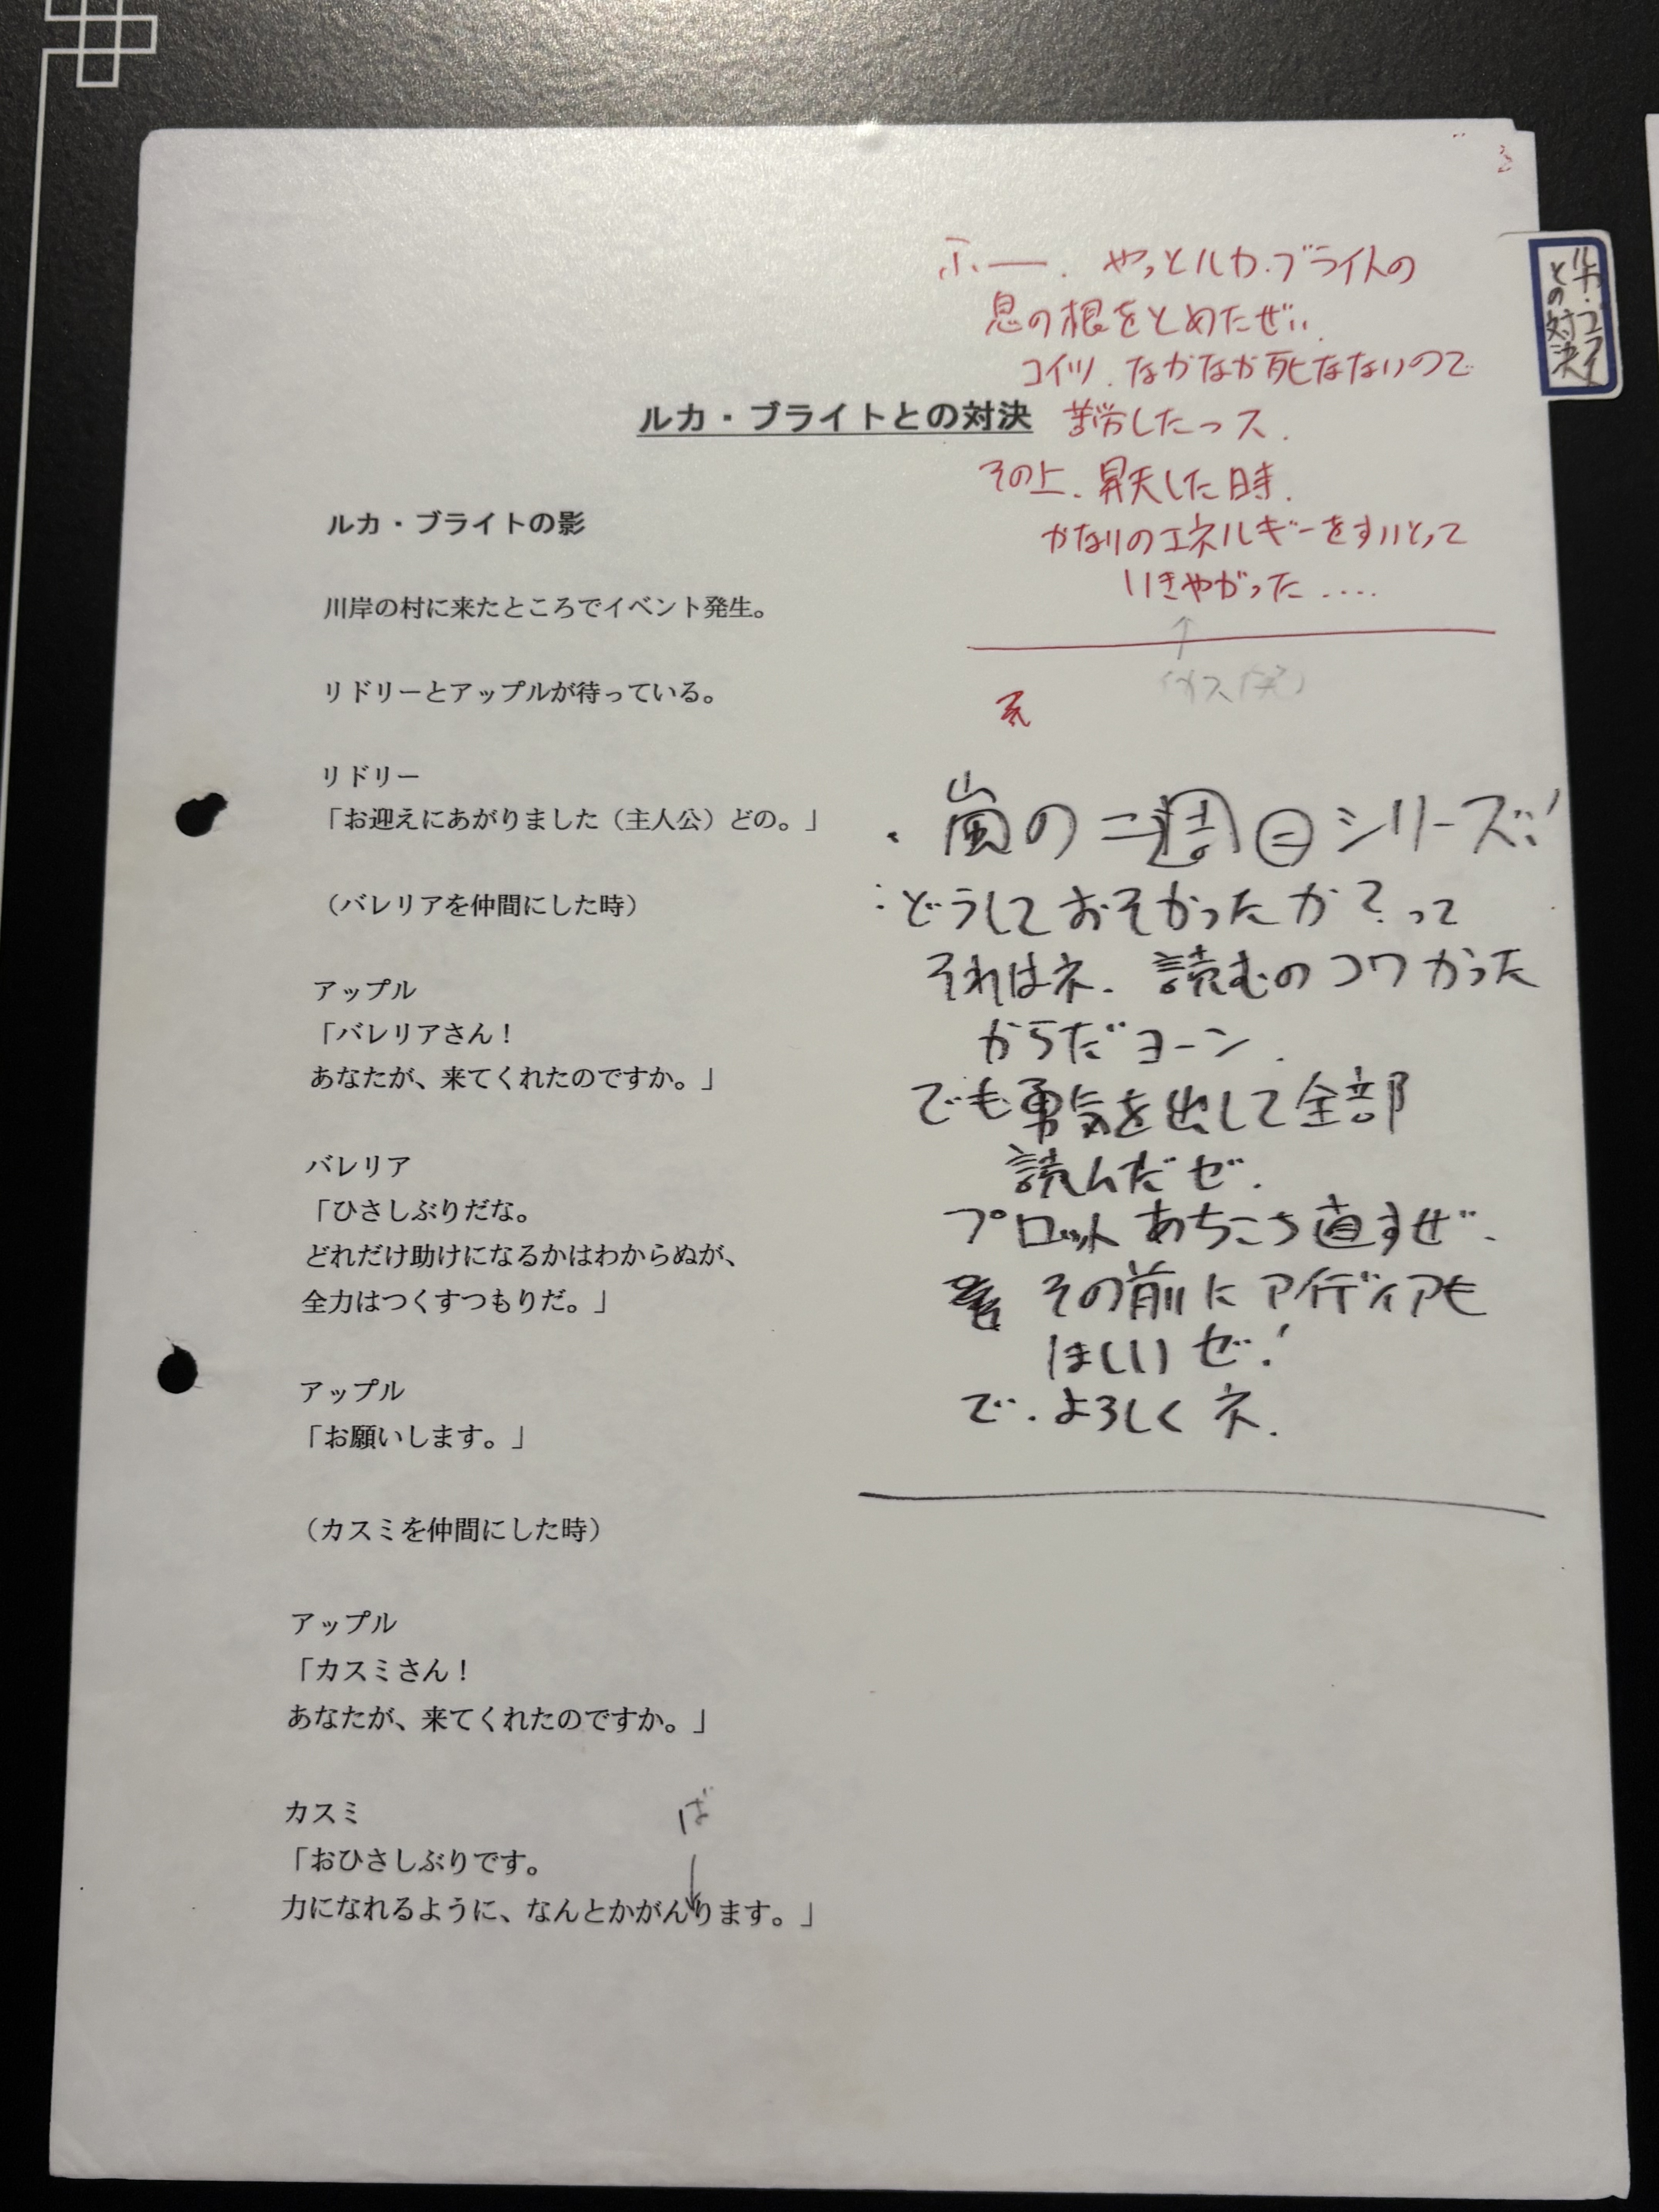 ふー．やっとルカ・ブライトの
息の根をとめたぜ‥
コイツ．なかなか死なないので
苦労したっス．
その上．昇天した時．
かなりのエネルギーをすいとって
いきやがった‥‥
↑
ルカ・ブライトとの対決
ルカ・ブライトとの対決
ルカ・ブライトの影
川岸の村に来たところでイベント発生。
リドリーとアップルが待っている。
リドリー
「お迎えにあがりました（主人公）どの。」
（バレリアを仲間にした時）
アップル
「バレリアさん！
あなたが、来てくれたのですか。」
バレリア
「ひさしぶりだな。
どれだけ助けになるかはわからぬが、
全力はつくすつもりだ。」
アップル
「お願いします。」
（カスミを仲間にした時）
アップル
「カスミさん！
あなたが、来てくれたのですか。」
カスミ
「おひさしぶりです。
ば
↓
力になれるように、なんとかがんります。」
・嵐の二週㊁シリーズ!
：どうしておそかったか？って
それはネ．読むのコワかった
からだヨーン．
でも勇気を出して全部
読んだゼ．
プロットあちこち直すぜ．
その前にアイディアも
ほしいぜ!
で．よろしくネ．